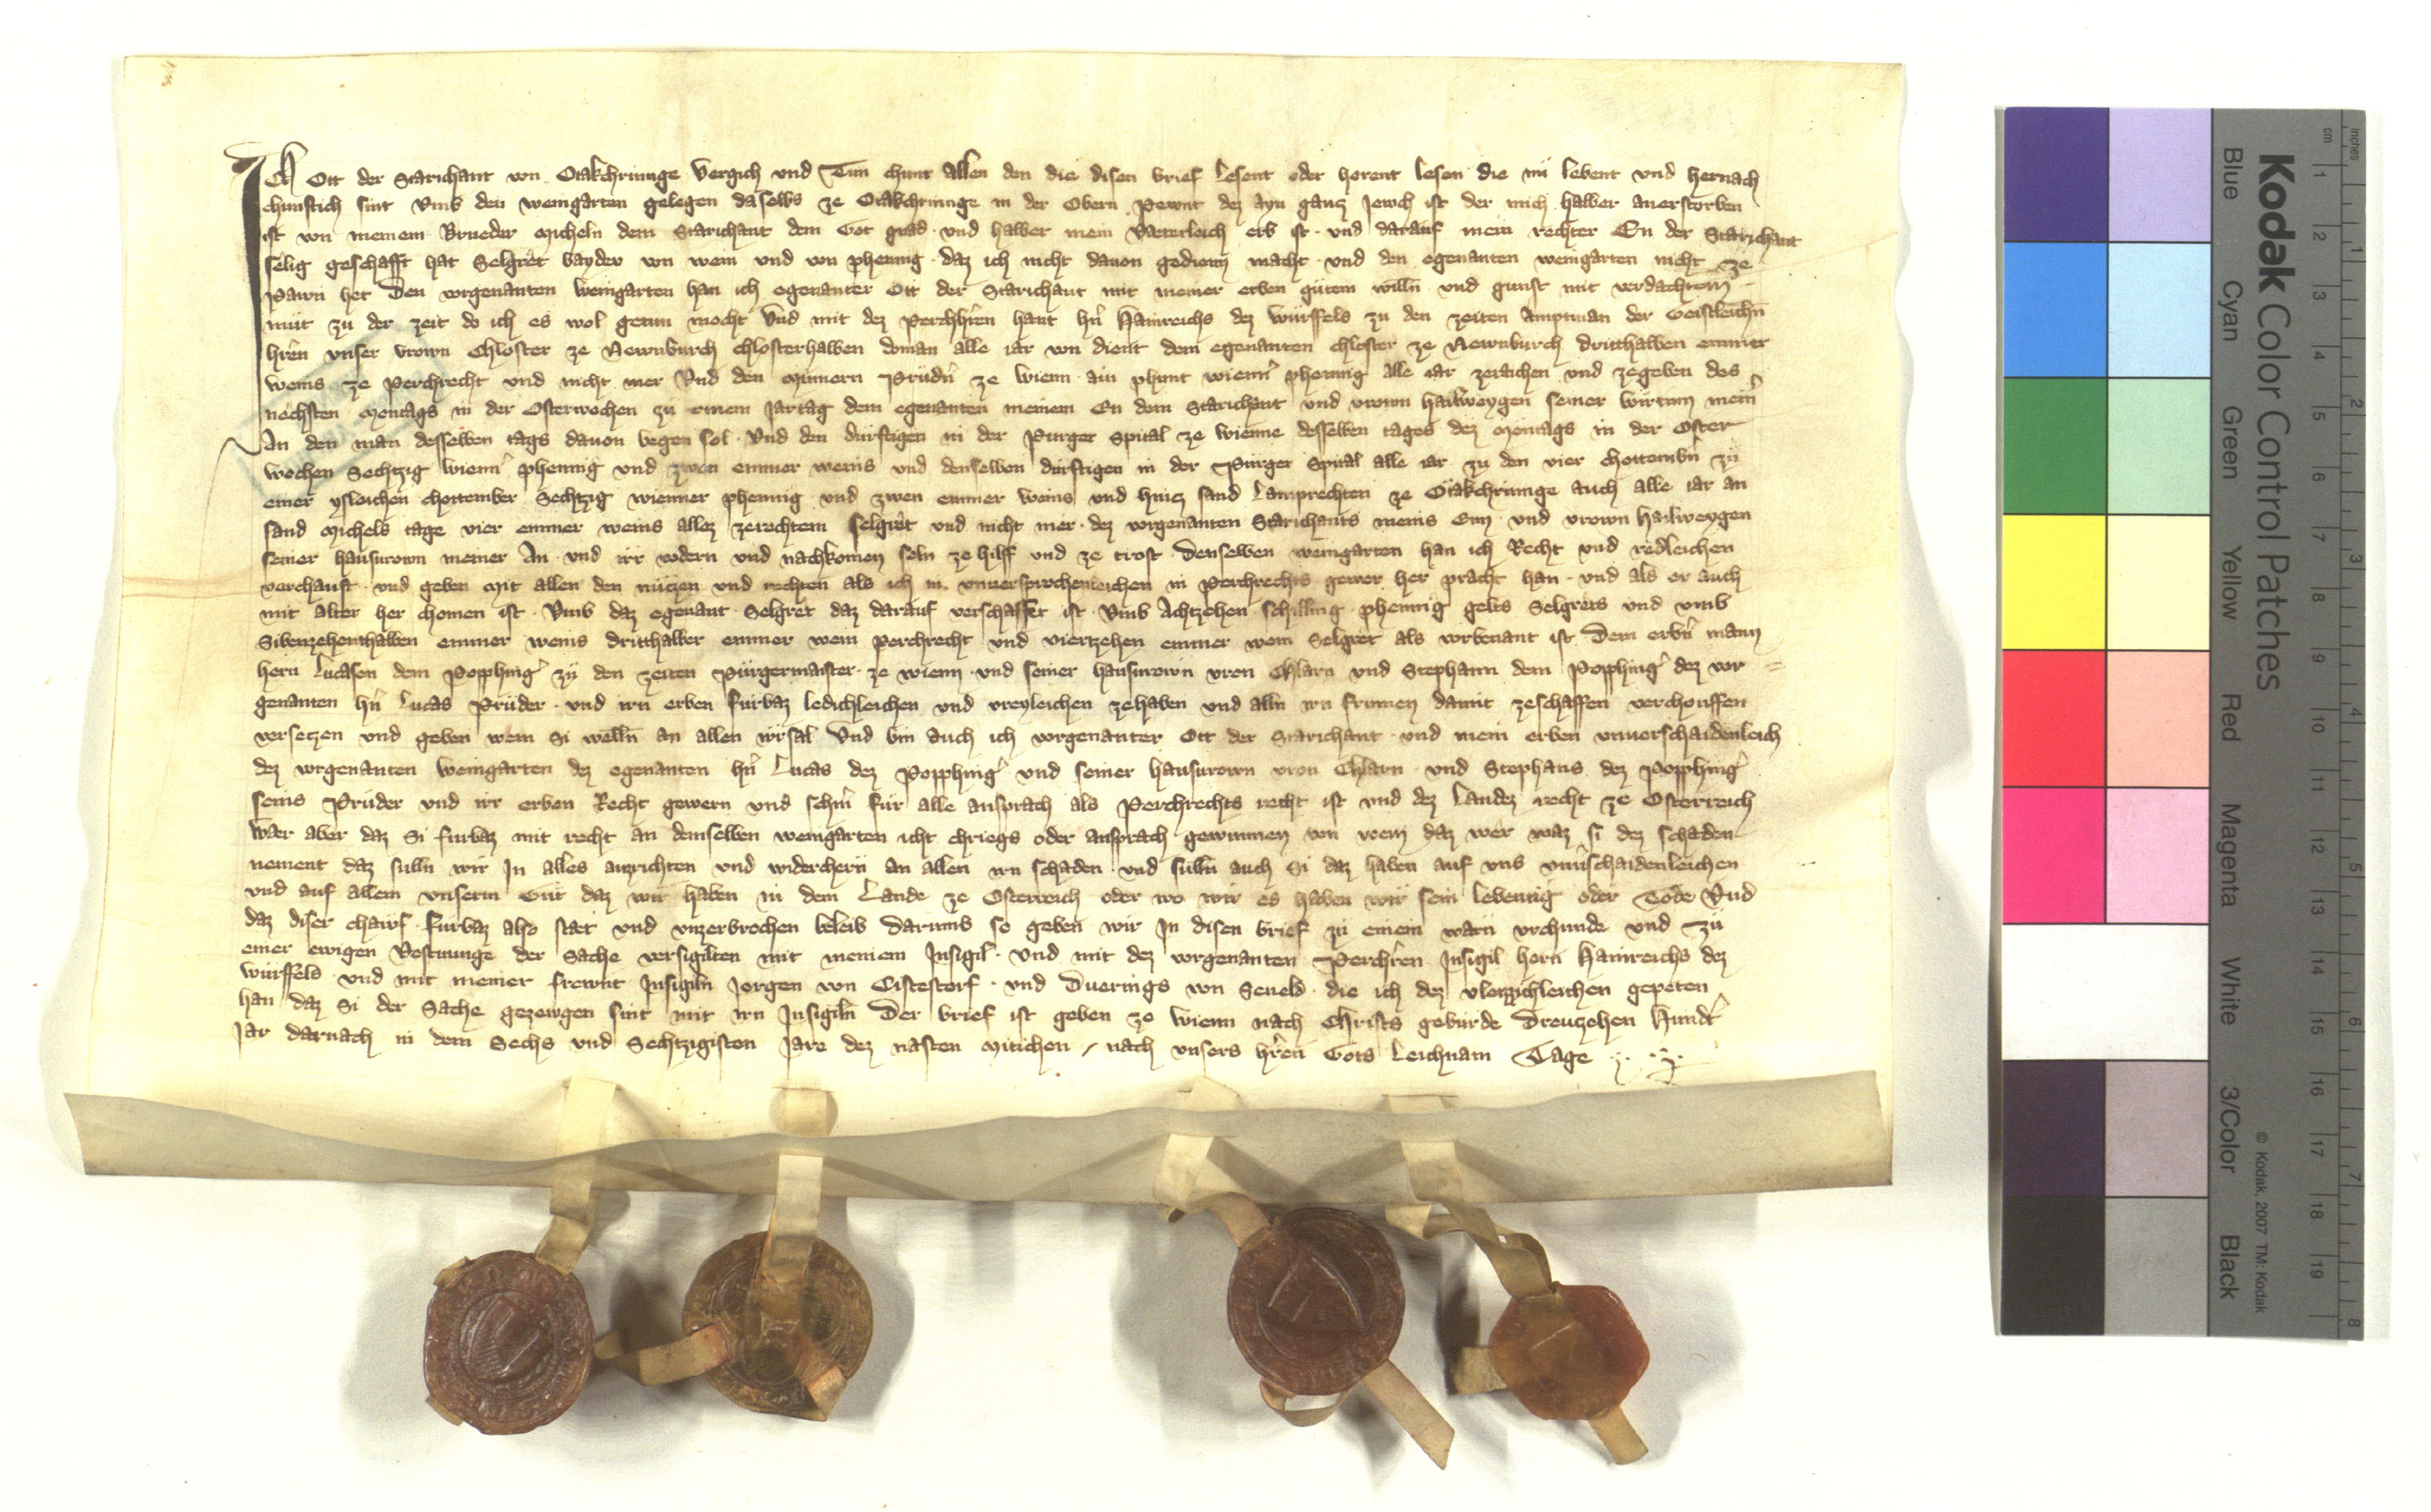 Ich Ott der Starichant von Otakchrinnge Vergich und Tun chunt allen den die disen brief Lesent oder horent lesen die nu lebent und hernach
chunftich sint Umb den weingarten gelegen daselbs ze Otakchrinnge in der Obern Pewnt dez ayn gancz Jewch ist der mich halber anerstorben
ist von meinem Brueder Micheln dem Starichant dem Got gnad und halber mein Vaeterleich erb ist und darauf mein rechter En der Starichant
selig geschafft hat Selgret bayder von wein und von phennig daz ich nicht davon gedienn macht und den egenanten weingarten nicht ze
Pawn het Den vorgenanten weingarten han ich egenanter Ott der Starichant mit meiner erben gutem willn und gunst mit verdachtem
mut zu der zeit do ich es wol getun mocht Und mit dez Perchhren hant hern Hainreichs dez Würffels zu den zeiten Amptman der Geistleichn
hren unser vrown Chloster ze Newnburch chlosterhalben doman alle iar von dient dem egenanten chloster ze Newnburch dritthalben emmer
weins ze Perchrecht und nicht mer Und den Minnern Prüdn ze Wienn ain phunt wienner phennig alle iar zeraichen und zegeben des
nechsten Mentags in der Osterwochen zu einem Jartag dem egenanten meinem En dem Starichant und vrown Hailweygen seiner wirtinn meiner
An den man desselben tags davon begen sol Und den dürftigen in der Purger Spital ze Wienne desselben tages dez Mentags in der Oster
wochen Sechtzig wienner phennig und zwen emmer weins und denselben dürftigen in der Purger Spital alle iar zu den vier chottembern zu
einer ysleichen chottember Sechtzig wienner phennig und zwen emmer weins und hincz sand Lamprechten ze Otakchrinnge auch alle iar an
sand Michels tage vier emmer weins allez zerechtem selgret und nicht mer dez vorgenanten Starichants meins Enn und vrown Hailweygen
seiner hausvrown meiner An und irr vodern und nachkomen seln ze hilff und ze trost Denselben weingarten han ich Recht und redleichen
verchauft und geben Mit allen den nuczen und rechten als ich in unversprochenleichen in Perchrechts gewer her pracht han und als er auch
mit alter her chomen ist Umb daz egenant Selgret daz darauf verschafft ist Umb Achtzehen schilling phennig gelts Selgrets und umb
Sibenzehenthalben emmer weins dritthalber emmer wein Perchrecht und viertzehen emmer wein Selgret als vorbenant ist Dem erbern mann
hern Lucasen dem Popphinger zu den zeiten Purgermaister ze wienn und seiner hausvrown vron Chlarn und Stephann dem Popphinger dez vor
genanten hern Lucas Prüder und irn erben fürbaz ledichleichen und vreyleichen zehaben und alln irn frumen damit zeschaffen verchouffen
versetzen und geben wem Si welln an allen irrsal Und bin auch ich vorgenanter Ott der Starichant und mein erben unverschaidenleich
dez vorgenanten weingarten dez egenanten hern Lucas dez Popphinger und seiner hausvrown vron Chlarn und Stephans dez Popphinger
seins Prüder und irr erben Recht gewern und scherm für alle ansprach als Perchrechts recht ist und dez Landez recht ze Osterreich
Wer aber daz Si fürbaz mit recht an demselben weingarten icht chriegs oder ansprach gewunnen von wem daz wer waz si dez schaden
nement daz sulln wir In alles auzrichten und widerchern an allen irn schaden und sulln auch Si daz haben auf uns unverschaidenleichen
und auf allem unserm Gut daz wir haben in dem Lande ze Osterreich oder wo wir es haben wir sein lebentig oder Tode Und
daz diser chawf fürbaz also stet und unzerbrochen beleib Darumb so geben wir In disen brief zu einem warn urchunde und zu
einer ewigen Vestnunge der Sache versigilten mit meinem Insigil und mit dez vorgenanten Perchhren Insigil hern Hainreichs dez
Würffels und mit meiner frewnt Insigiln Jorgen von Cistestorf und Duerings von Seveld die ich dez vleizzichleichen gepeten
han daz Si der Sache gezewgen sint mit irn Insigiln Der brief ist geben ze Wienn nach Christs geburde Dreutzehen Hundert
Jar darnach in dem Sechs und Sechtzigisten Jare dez nasten Mitichen nach unsers hren Gots Leichnam Tage
Kodak Color Control Patches
Blue Cyan Green Yellow Red Magenta White 3/Color Black
© Kodak, 2007 TM: Kodak
cm 1 2 3 4 5 6 7 8 9 10 11 12 13 14 15 16 17 18 19
inches 1 2 3 4 5 6 7 8